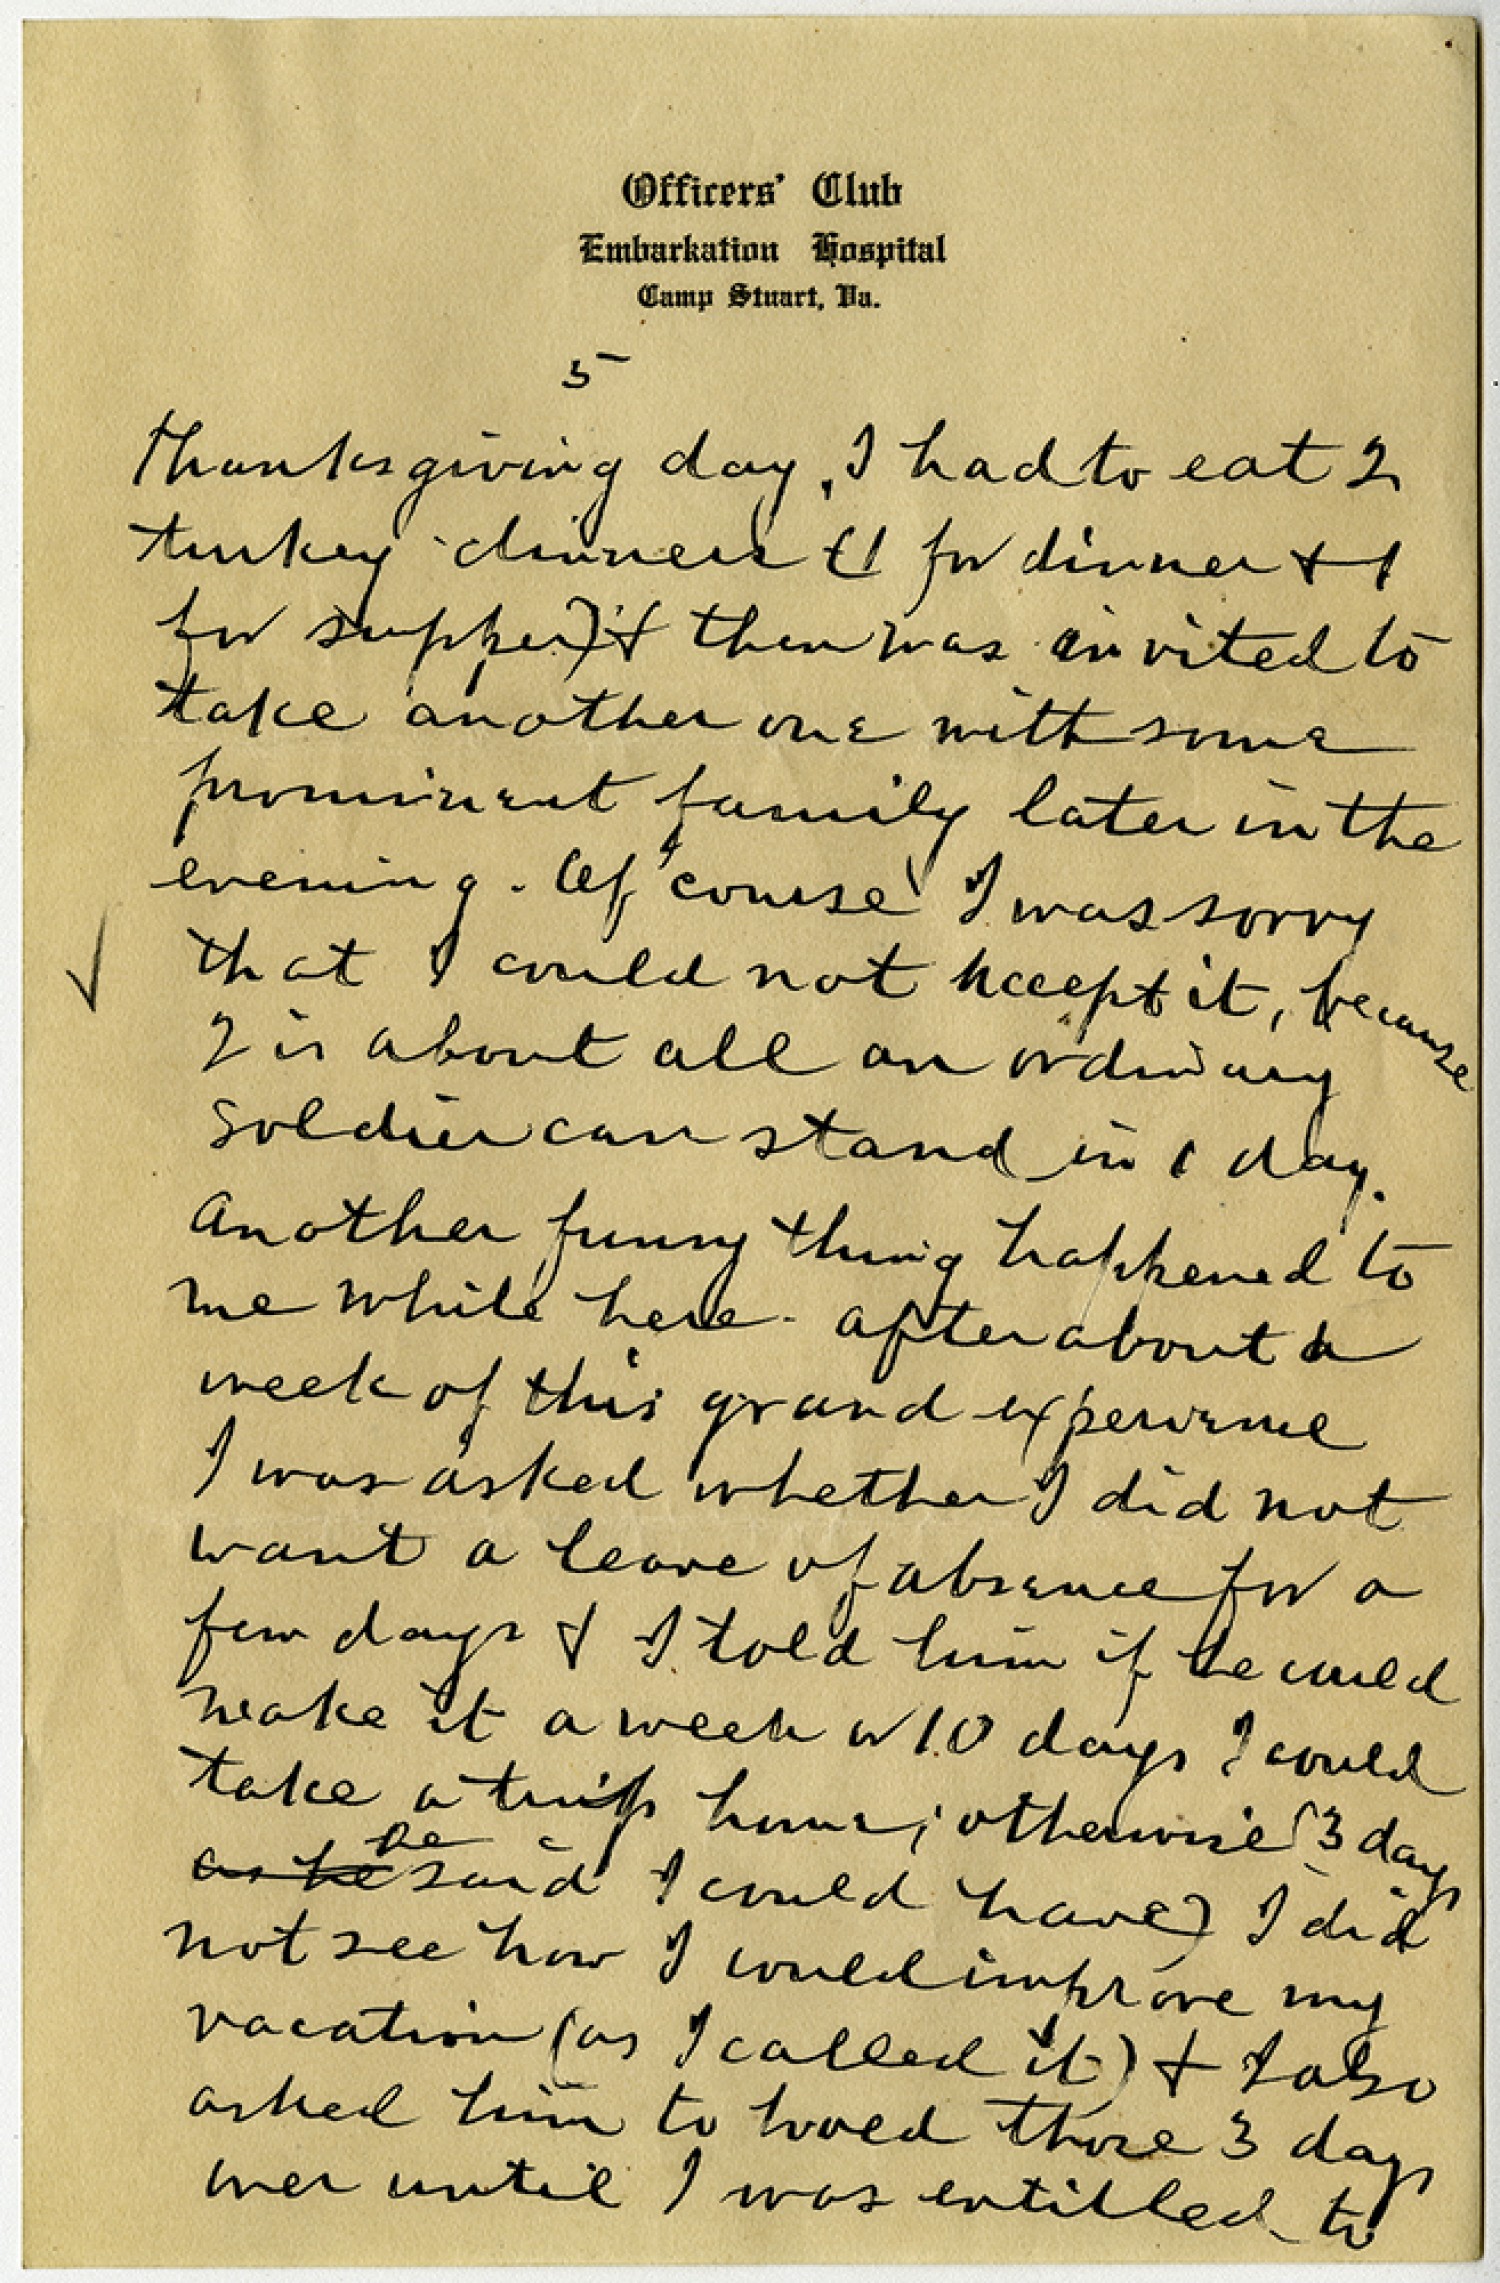 Officers' Club
Embarkation Hospital
Camp Stuart, Va.
5
Thanksgiving day, I had to eat 2
turkey dinners (1 for dinner + 1
for supper) & then was invited to
take another one with some
prominent family later in the
evening. Of course I was sorry
that I could not accept it, because
2 is about all an ordinary
soldier can stand in 1 day.
Another funny thing happened to
me while here - after about a
week of this grand experience
I was asked whether I did not
want a leave of absence for a
few days & I told him if he could
make it a week or 10 days I could
take a trip home; otherwise (3 days
as he he said I could have) I did
not see how I would improve my
vacation (as I called it) + I also
asked him to hold those 3 days
over until I was entitled to